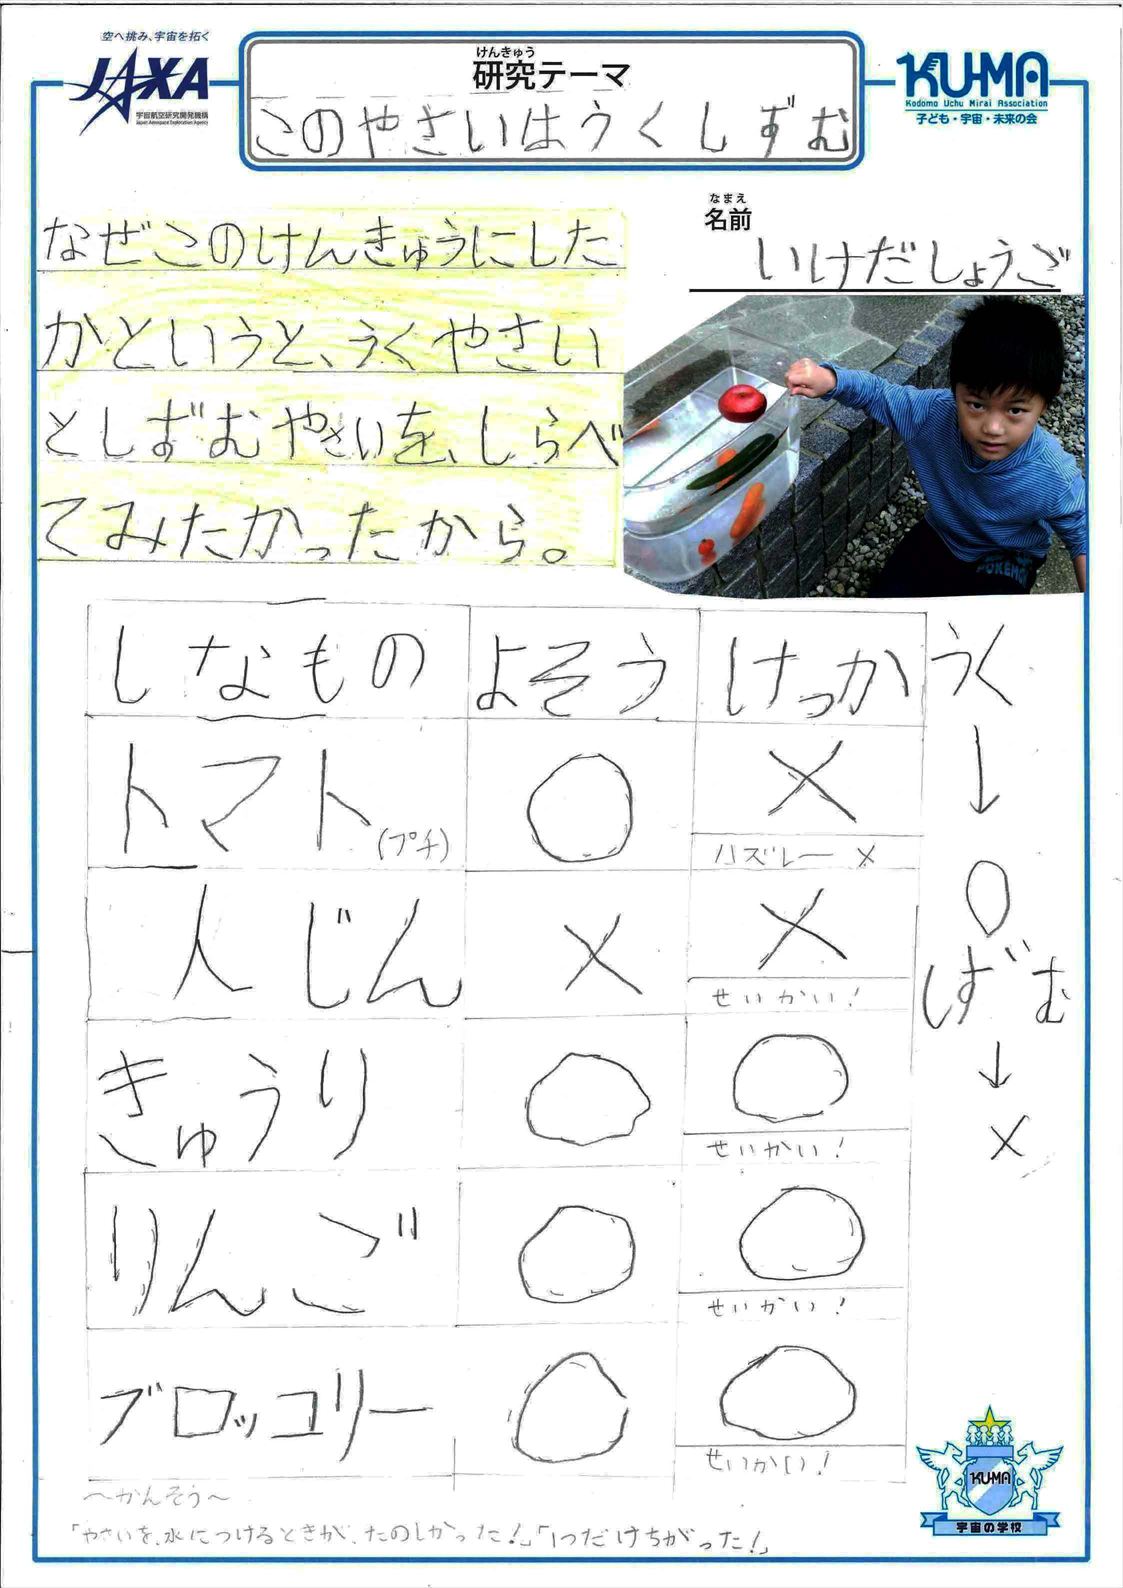 空へ挑み、宇宙を拓く
JAXA
宇宙航空研究開発機構
Japan Aerospace Exploration Agency
けんきゅう
研究テーマ
このやさいはうくしずむ
KU-MA
Kodomo Uchu Mirai Association
子ども・宇宙・未来の会
なまえ
名前
いけだしょうご
なぜこのけんきゅうにした
かというと、うくやさい
としずむやさいを、しらべ
てみたかったから。
POKÉMON
しなもの よそう けっか
トマト(プチ) ○ ×
ハズレー ×
人じん × ×
せいかい!
きゅうり ○ ○
せいかい!
りんご ○ ○
せいかい!
ブロッコリー ○ ○
せいかい!
うく
↓
○
しずむ
↓
×
〜かんそう〜
「やさいを、水につけるときが、たのしかった!」「1つだけちがった!」
KU-MA
宇宙の学校